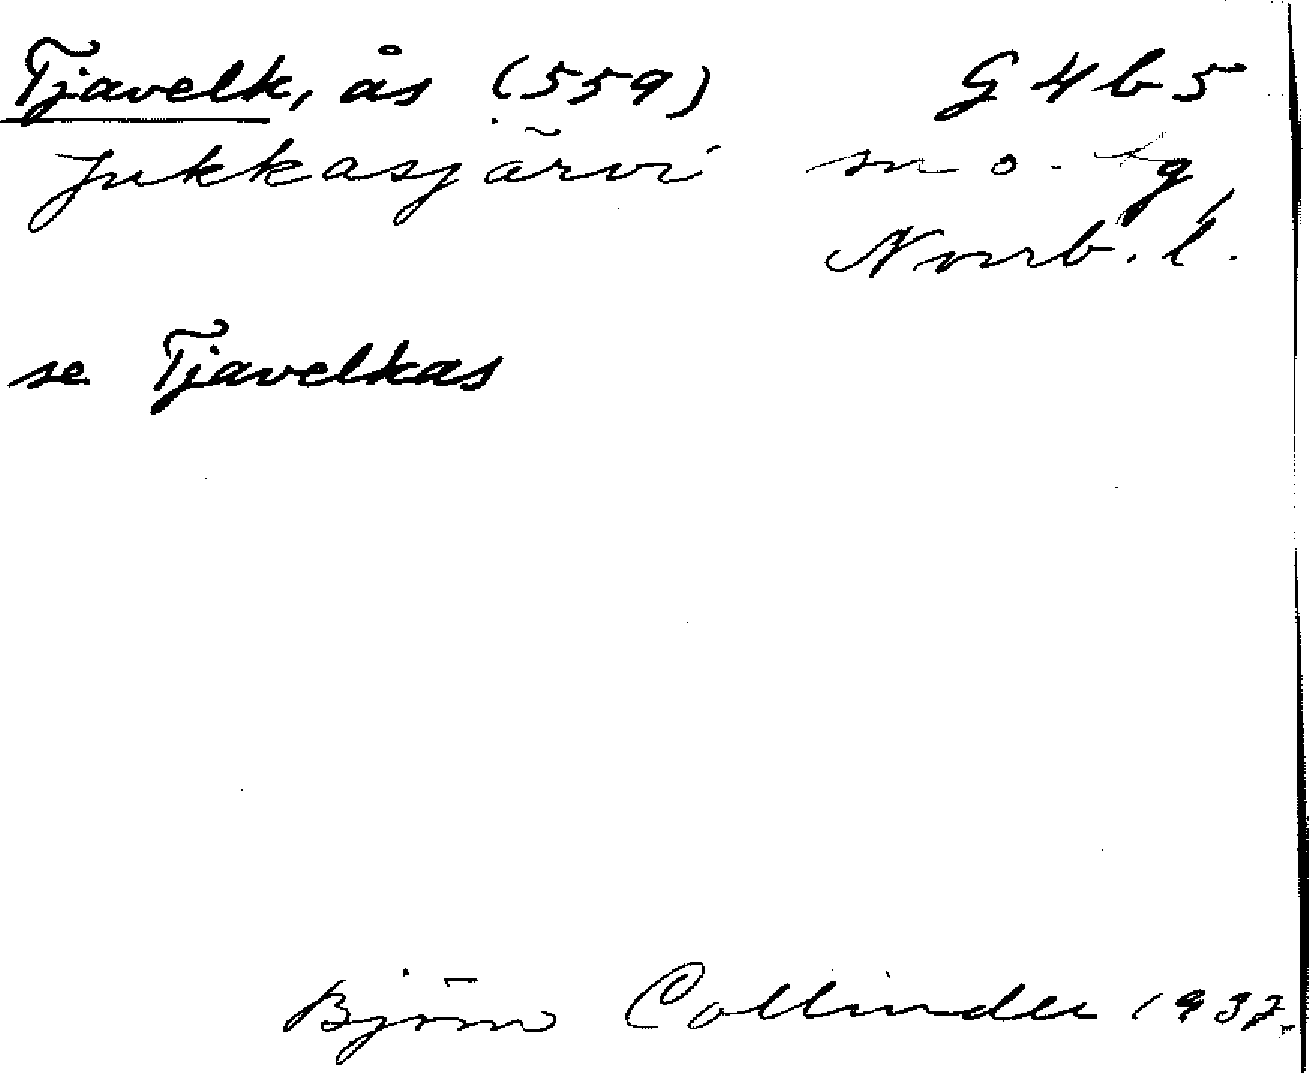 Tjavelk, ås (559) G 4 b 5
Jukkasjärvi sn o. tg
Norrb. l.
se Tjavelkas
Björn Collinder 1937.